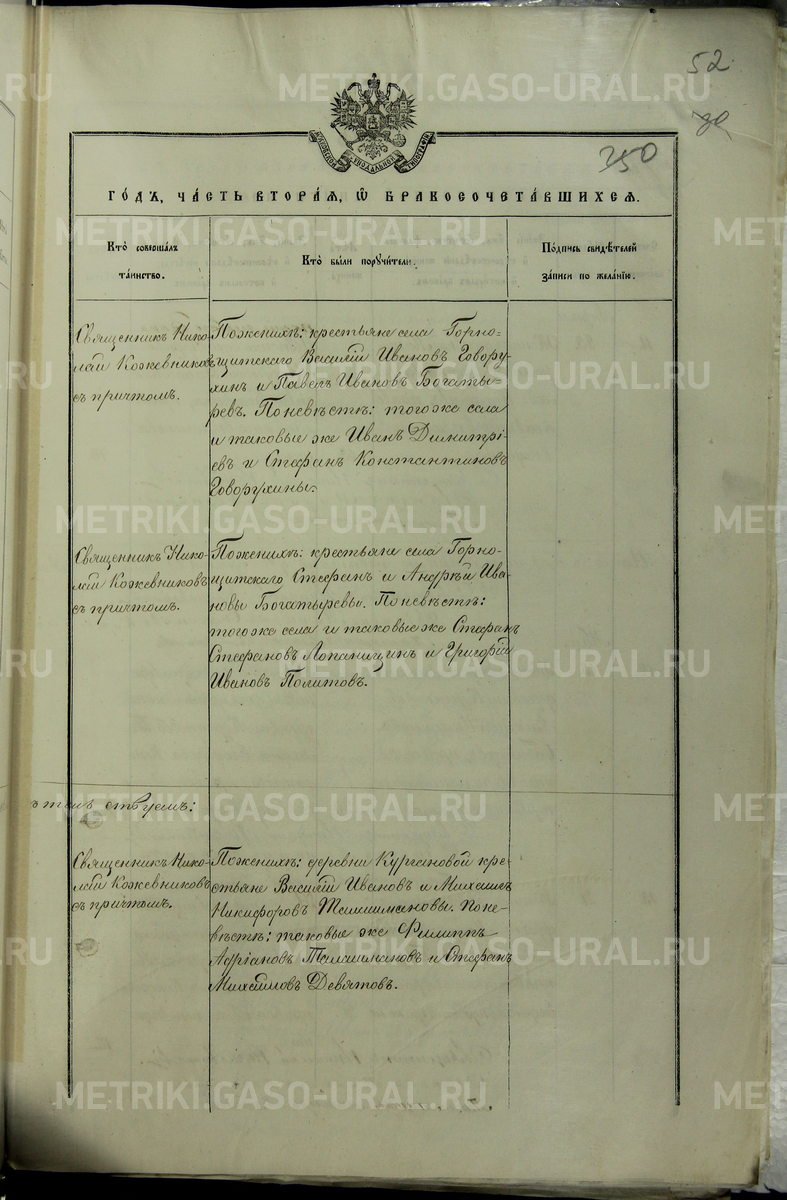 52
30
350
МОСКОВСКОЙ СѴНОДАЛЬНОЙ ТИПОГРАФІИ
ГО́ДЪ, ЧА́СТЬ ВТОРА́Я, Ѡ БРАКОСОЧЕТА́ВШИХСЯ.
Кто̀ соверша́лъ
та́инство.
Кто̀ бы́ли порꙋчи́тели.
По́дпись свидѣ́телей
за́писи по жела́нїю.
Священникъ Нико-
лай Кожевниковъ
съ причтомъ.
По женихѣ: крестьяне села Горно-
щитскаго Василій Ивановъ Говору-
хинъ и Павелъ Ивановъ Богаты-
ревъ. По невѣстѣ: того же села
и таковые же Иванъ Димитрі-
евъ и Стефанъ Константиновъ
Говорухины.
Священникъ Нико-
лай Кожевниковъ
съ причтомъ.
По женихѣ: крестьяне села Горно-
щитскаго Стефанъ и Андрей Ива-
новы Богатыревы. По невѣстѣ:
того же села и таковые же Стефанъ
Стефановъ Лопанищинъ и Григорій
Ивановъ Политовъ.
Священникъ Нико-
лай Кожевниковъ
съ причтомъ.
По женихѣ: деревни Кургановой кре-
стьяне Василій Ивановъ и Михаилъ
Никифоровъ Талашмановы. По не-
вѣстѣ: таковые же Филиппъ
Адріановъ Талашмановъ и Стефанъ
Михаиловъ Девятовъ.
METRIKI.GASO-URAL.RU